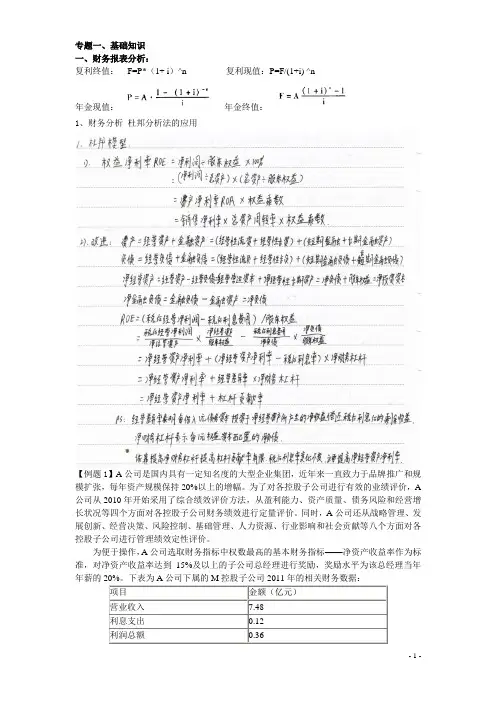 专题一、基础知识
一、财务报表分析：
复利终值： F=P*（1+ i）^n 复利现值：P=F/(1+i) ^n
年金现值： P = A · 1 − (1 + i)^-n / i 年金终值： F = A (1 + i)^n − 1 / i
1、财务分析 杜邦分析法的应用
1. 杜邦模型
1). 权益净利率ROE = 净利润÷股东权益 × 100%
= (净利润÷总资产) × (总资产÷股东权益)
= 资产净利率ROA × 权益乘数
= 销售净利率 × 总资产周转率 × 权益乘数
2). 改进： 资产 = 经营资产 + 金融资产 = (经营性流资 + 经营性长资) + (短期金融 + 长期金融资产)
负债 = 经营负债 + 金融负债 = (经营性流负 + 经营性长负) + (短期金融负债 + 长期金融负债)
净经营资产 = 经营资产 − 经营负债
净金融负债 = 金融负债 − 金融资产 = 净负债
ROE = (税后经营净利润 − 税后利息费用) / 股东权益
= 税后经营净利润/净经营资产 × 净经营资产/股东权益 − 税后利息费用/净负债 × 净负债/股东权益
= 净经营资产净利率 + (净经营资产净利率 − 税后利息率) × 净财务杠杆
= 净经营资产净利率 + 经营差异率 × 净财务杠杆
= 净经营资产净利率 + 杠杆贡献率
【例题1】A公司是国内具有一定知名度的大型企业集团，近年来一直致力于品牌推广和规
模扩张，每年资产规模保持20%以上的增幅。为了对各控股子公司进行有效的业绩评价，A
公司从2010年开始采用了综合绩效评价方法，从盈利能力、资产质量、债务风险和经营增
长状况等四个方面对各控股子公司财务绩效进行定量评价。同时，A公司还从战略管理、发
展创新、经营决策、风险控制、基础管理、人力资源、行业影响和社会贡献等八个方面对各
控股子公司进行管理绩效定性评价。
为便于操作，A公司选取财务指标中权数最高的基本财务指标——净资产收益率作为标
准，对净资产收益率达到15%及以上的子公司总经理进行奖励，奖励水平为该总经理当年
年薪的20%。下表为A公司下属的M控股子公司2011年的相关财务数据：
项目 金额（亿元）
营业收入 7.48
利息支出 0.12
利润总额 0.36
- 1 -